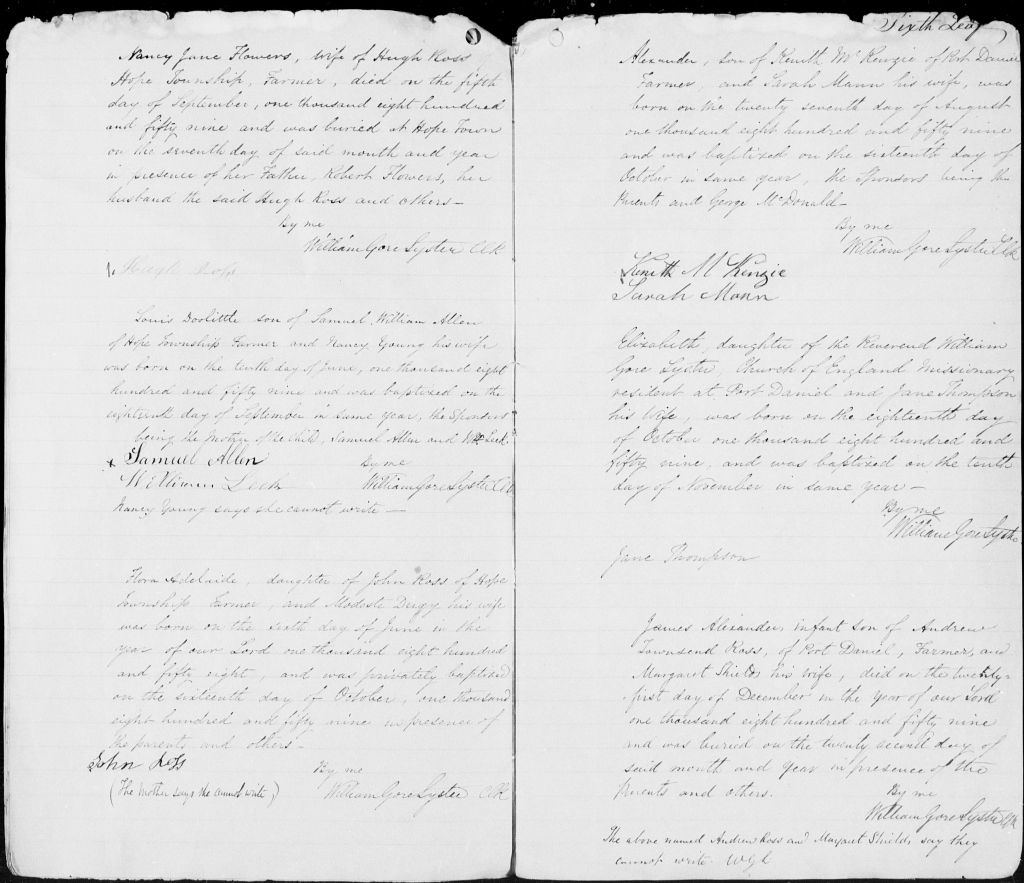 Nancy Jane Flowers, wife of Hugh Ross
Hope Township, Farmer, died on the fifth
day of September, one thousand eight hundred
and fifty nine and was buried at Hope Town
on the seventh day of said month and year
in presence of her Father, Robert Flowers, her
husband the said Hugh Ross and others—
By me
William Gore Lyster Clk
Hugh Ross
Louis Doolittle son of Samuel William Allen
of Hope Township Farmer and Nancy Young his wife
was born on the tenth day of June, one thousand eight
hundred and fifty nine and was baptized on the
eighteenth day of September in same year, the Sponsors
being the Mother of the Child, Samuel Allen and Wm Leek.
x Samuel Allen
By me
William Leek
William Gore Lyster Clk
Nancy Young says she cannot write —
Flora Adelaide, daughter of John Ross of Hope
Township Farmer, and Modoste his wife
was born on the sixth day of June in the
year of our Lord one thousand eight hundred
and fifty eight, and was privately baptized
on the sixteenth day of October, one thousand
eight hundred and fifty nine in presence of
the parents and others—
John Ross
By me
(The Mother says she cannot write,)
William Gore Lyster Clk
Sixth Leaf
Alexander, son of Kenith McKenzie of Port Daniel
Farmer, and Sarah Mann his wife, was
born on the twenty seventh day of August
one thousand eight hundred and fifty nine
and was baptized on the sixteenth day of
October in same year, the Sponsors being the
Parents and George McDonald—
By me
William Gore Lyster Clk
Kenith McKenzie
Sarah Mann
Elizabeth, daughter of the Reverend William
Gore Lyster, Church of England Missionary
resident at Port Daniel and Jane Thompson
his Wife, was born on the eighteenth day
of October one thousand eight hundred and
fifty nine, and was baptized on the tenth
day of November in same year—
By me
William Gore Lyster
Jane Thompson
James Alexander, infant son of Andrew
Townsend Ross, of Port Daniel, Farmer, and
Margaret Shields his wife, died on the twenty-
first day of December in the Year of our Lord
one thousand eight hundred and fifty nine
and was buried on the twenty second day of
said month and year in presence of the
Parents and others.
By me
William Gore Lyster Clk
The above named Andrew Ross and Margaret Shields say they
cannot write WGL